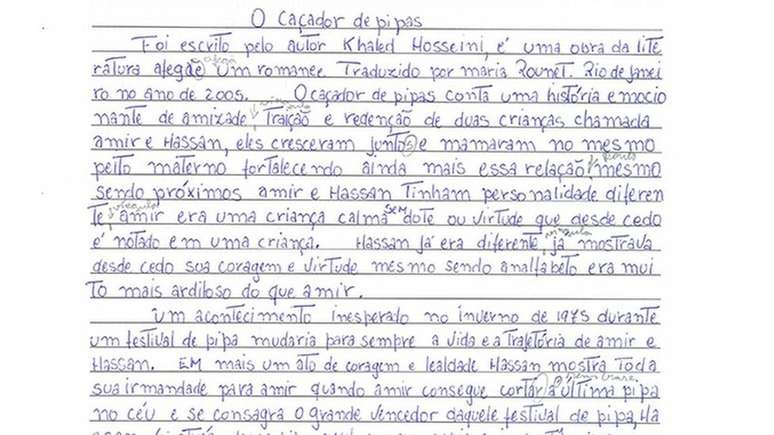 O Caçador de pipas
Foi escrito pelo autor Khaled Hosseini, é uma obra da lite
ratura afegãe um romance. Traduzido por maria Rounet. Rio de Janei
ro no ano de 2005. O caçador de pipas conta uma história emocio
nante de amizade, Traição e redenção de duas crianças chamada
amir e Hassan, eles cresceram juntos e mamaram no mesmo
peito materno fortalecendo ainda mais essa relação, mesmo
sendo próximos amir e Hassan tinham personalidade diferen
te, amir era uma criança calma sem dote ou virtude que desde cedo
é notado em uma criança. Hassan já era diferente, já mostrava
desde cedo sua coragem e virtude mesmo sendo analfabeto era mui
to mais ardiloso do que amir.
um acontecimento inesperado no inverno de 1975 durante
um festival de pipa mudaria para sempre a vida e a trajetória de amir e
Hassan. Em mais um ato de coragem e lealdade Hassan mostra toda
sua irmandade para amir quando amir consegue cortar a última pipa
no céu e se consagra o grande vencedor daquele festival de pipa, Ha